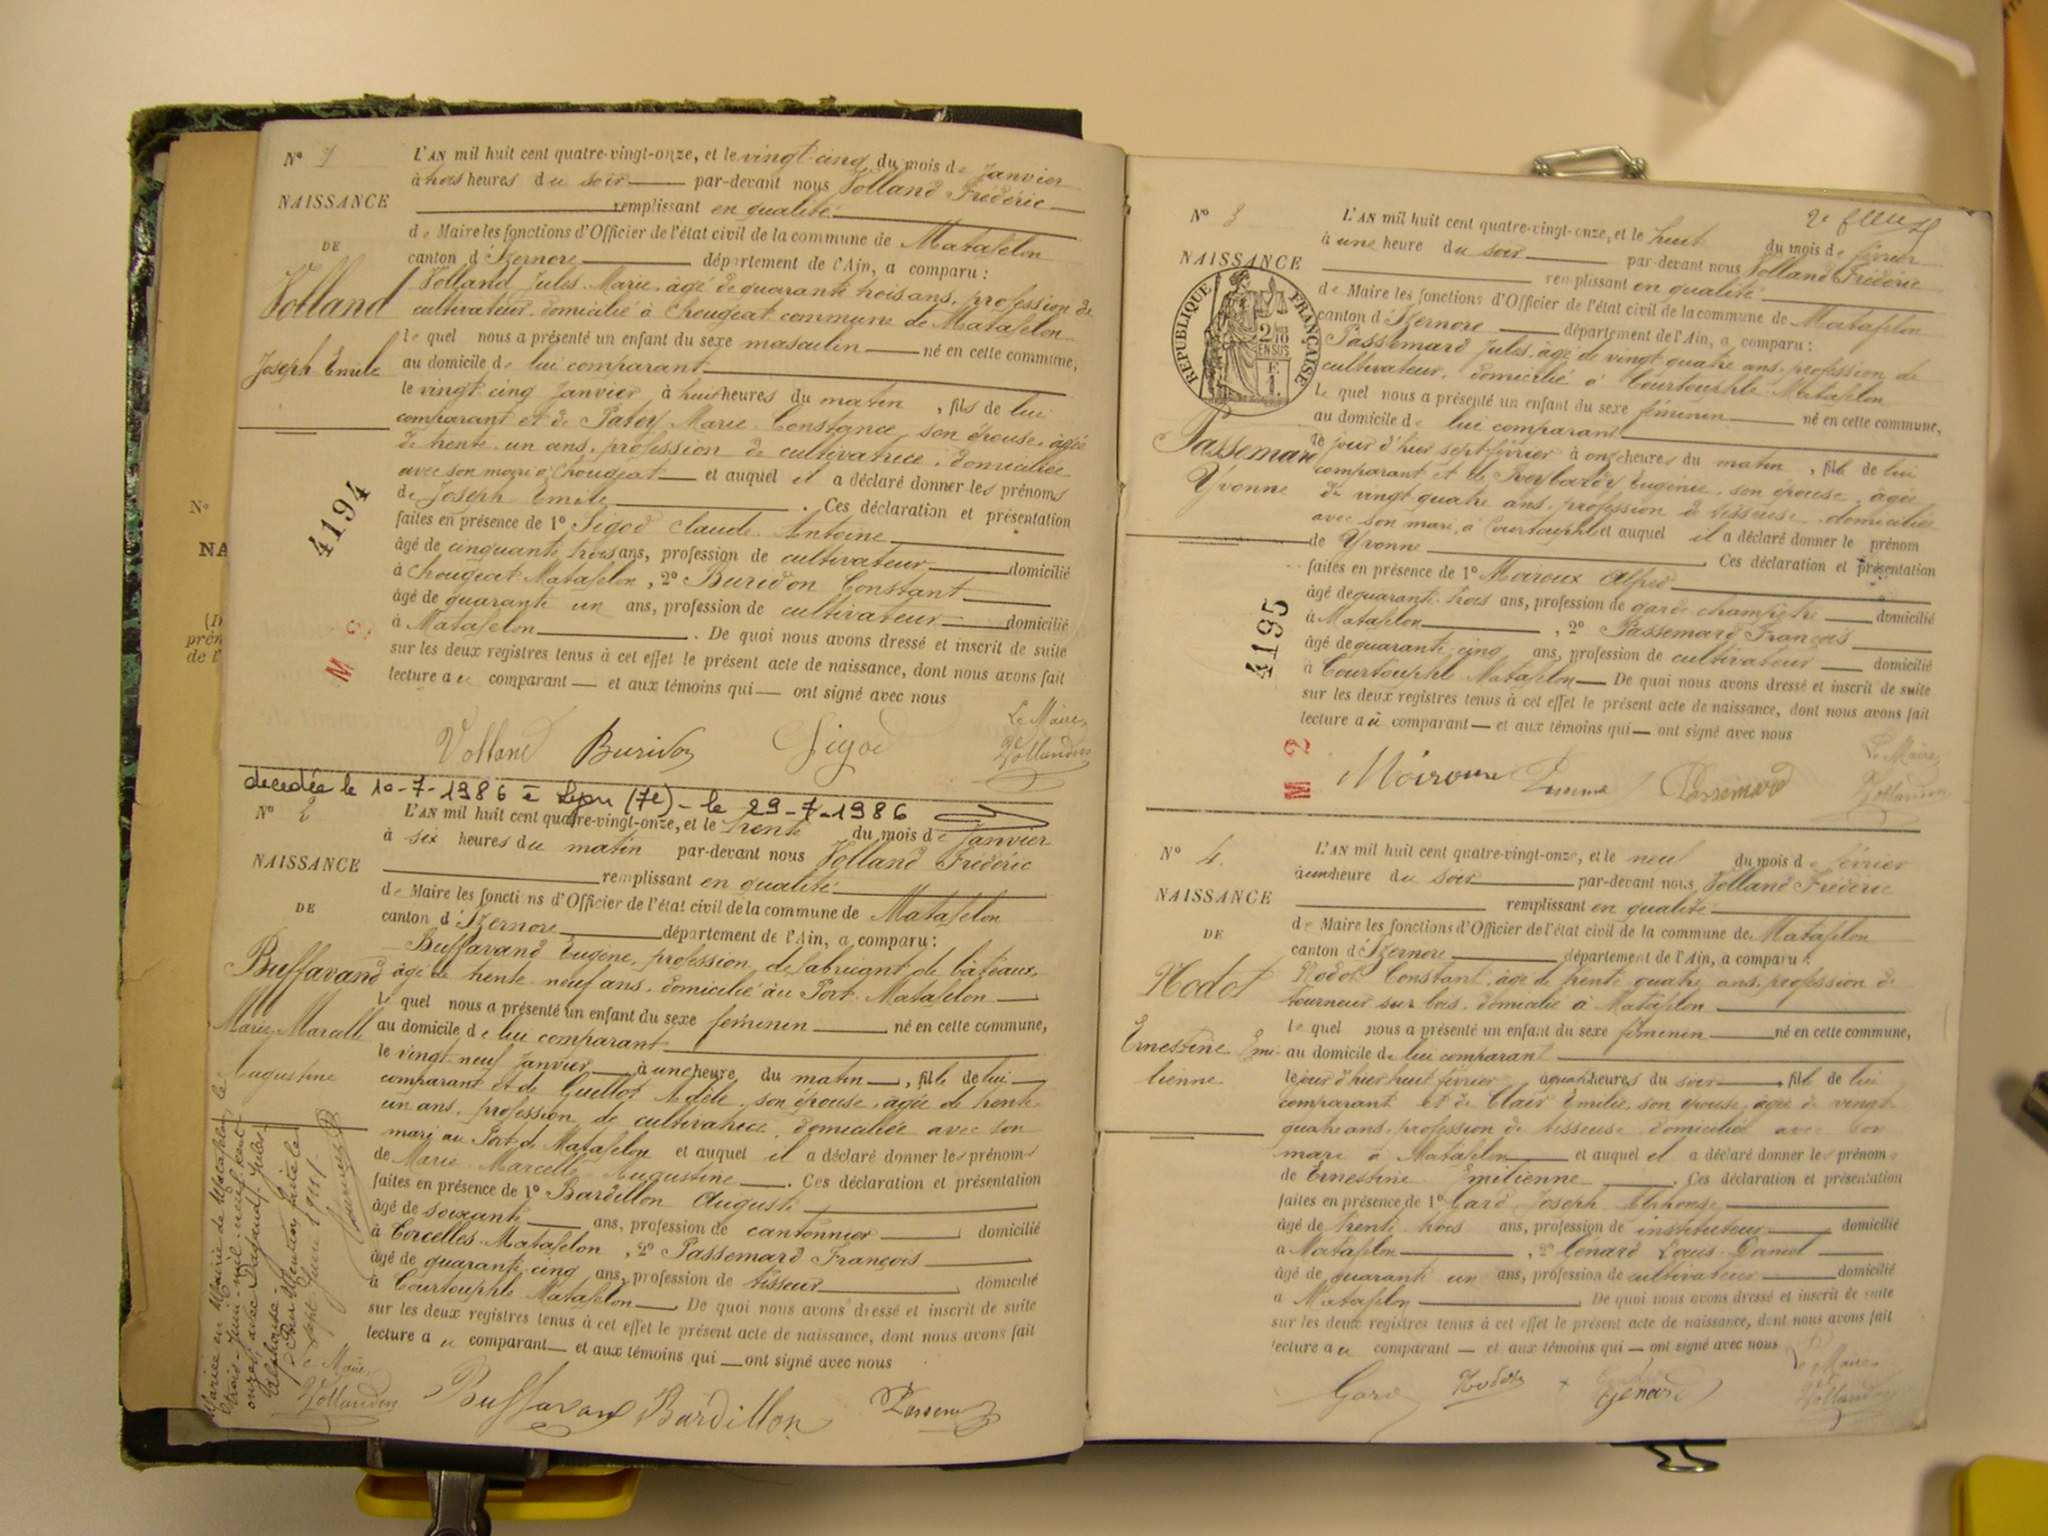 N° 1
NAISSANCE
DE
Volland
Joseph Emile
4194
L'AN mil huit cent quatre-vingt-onze, et le vingt-cinq du mois de Janvier
à trois heures du soir par-devant nous Volland Frédéric
remplissant en qualité
de Maire les fonctions d'Officier de l'état civil de la commune de Matafelon
canton d'Izernore département de l'Ain, a comparu :
Volland Jules Marie, âgé de quarante trois ans, profession de
cultivateur, domicilié à Chougeat commune de Matafelon
le quel nous a présenté un enfant du sexe masculin né en cette commune,
au domicile de lui comparant
le vingt cinq Janvier à huit heures du matin, fils de lui
comparant et de Marie Constance, son épouse, âgée
de trente un ans, profession de cultivatrice, domiciliée
avec son mari à Chougeat et auquel il a déclaré donner les prénoms
de Joseph Emile. Ces déclaration et présentation
faites en présence de 1° Sigod Claude Antoine
âgé de cinquante trois ans, profession de cultivateur domicilié
à Chougeat Matafelon, 2° Buridon Constant
âgé de quarante un ans, profession de cultivateur domicilié
à Matafelon. De quoi nous avons dressé et inscrit de suite
sur les deux registres tenus à cet effet le présent acte de naissance, dont nous avons fait
lecture au comparant et aux témoins qui ont signé avec nous
Le Maire
Volland Buridon Sigod Volland
decedée le 10-7-1986 à Lyon (7e) - le 29-7-1986
N° 2
NAISSANCE
DE
Buffavand
Marie Marcelle
Augustine
L'AN mil huit cent quatre-vingt-onze, et le trente du mois de Janvier
à six heures du matin par-devant nous Volland Frédéric
remplissant en qualité
de Maire les fonctions d'Officier de l'état civil de la commune de Matafelon
canton d'Izernore département de l'Ain, a comparu :
Buffavand Eugène, profession de fabricant de bateaux,
âgé de trente neuf ans, domicilié au Port Matafelon
le quel nous a présenté un enfant du sexe féminin né en cette commune,
au domicile de lui comparant
le vingt neuf Janvier à une heure du matin, fille de lui
comparant et de Guillot Adèle, son épouse, âgée de trente
un ans, profession de cultivatrice, domiciliée avec son
mari au Port de Matafelon et auquel il a déclaré donner les prénoms
de Marie Marcelle Augustine. Ces déclaration et présentation
faites en présence de 1° Bardillon Auguste
âgé de soixante ans, profession de cantonnier domicilié
à Corcelles Matafelon, 2° Passemard François
âgé de quarante cinq ans, profession de tisseur domicilié
à Courtouphle Matafelon. De quoi nous avons dressé et inscrit de suite
sur les deux registres tenus à cet effet le présent acte de naissance, dont nous avons fait
lecture au comparant et aux témoins qui ont signé avec nous
Mariée en Mairie de Matafelon le
trois juin mil neuf cent
onze avec Jules
Alphonse.
Pour Mention faite le
sept Juin 1911
Le Maire
Volland Buffavand Bardillon
N° 3
NAISSANCE
RÉPUBLIQUE FRANÇAISE
Passemard
Yvonne
4195
2e feuille
L'AN mil huit cent quatre-vingt-onze, et le huit du mois de février
à une heure du soir par-devant nous Volland Frédéric
remplissant en qualité
de Maire les fonctions d'Officier de l'état civil de la commune de Matafelon
canton d'Izernore département de l'Ain, a comparu :
Passemard Jules, âgé de vingt quatre ans, profession de
cultivateur, domicilié à Courtouphle Matafelon
le quel nous a présenté un enfant du sexe féminin né en cette commune,
au domicile de lui comparant
le jour d'hier sept février à onze heures du matin, fille de lui
comparant et de Eugénie, son épouse, âgée
de vingt quatre ans, profession de tisseuse, domiciliée
avec son mari, à Courtouphle et auquel il a déclaré donner le prénom
de Yvonne. Ces déclaration et présentation
faites en présence de 1° Moiroux Alfred
âgé de quarante trois ans, profession de garde champêtre domicilié
à Matafelon, 2° Passemard François
âgé de quarante cinq ans, profession de cultivateur domicilié
à Courtouphle Matafelon. De quoi nous avons dressé et inscrit de suite
sur les deux registres tenus à cet effet le présent acte de naissance, dont nous avons fait
lecture au comparant et aux témoins qui ont signé avec nous
Le Maire
Moiroux Passemard Volland
N° 4.
NAISSANCE
DE
Nodot
Ernestine Emi-
lienne
L'AN mil huit cent quatre-vingt-onze, et le neuf du mois de février
à une heure du soir par-devant nous Volland Frédéric
remplissant en qualité
de Maire les fonctions d'Officier de l'état civil de la commune de Matafelon
canton d'Izernore département de l'Ain, a comparu :
Nodot Constant, âgé de trente quatre ans, profession de
tourneur sur bois, domicilié à Matafelon
le quel nous a présenté un enfant du sexe féminin né en cette commune,
au domicile de lui comparant
le jour d'hier huit février à quatre heures du soir, fille de lui
comparant et de Clair Emilie, son épouse, âgée de vingt
quatre ans, profession de tisseuse, domiciliée avec son
mari à Matafelon et auquel il a déclaré donner les prénoms
de Ernestine Emilienne. Ces déclaration et présentation
faites en présence de 1° Gard Joseph Alphonse
âgé de trente trois ans, profession de instituteur domicilié
à Matafelon, 2° Génard Louis Daniel
âgé de quarante un ans, profession de cultivateur domicilié
à Matafelon. De quoi nous avons dressé et inscrit de suite
sur les deux registres tenus à cet effet le présent acte de naissance, dont nous avons fait
lecture au comparant et aux témoins qui ont signé avec nous
Le Maire
Gard Nodot Génard Volland